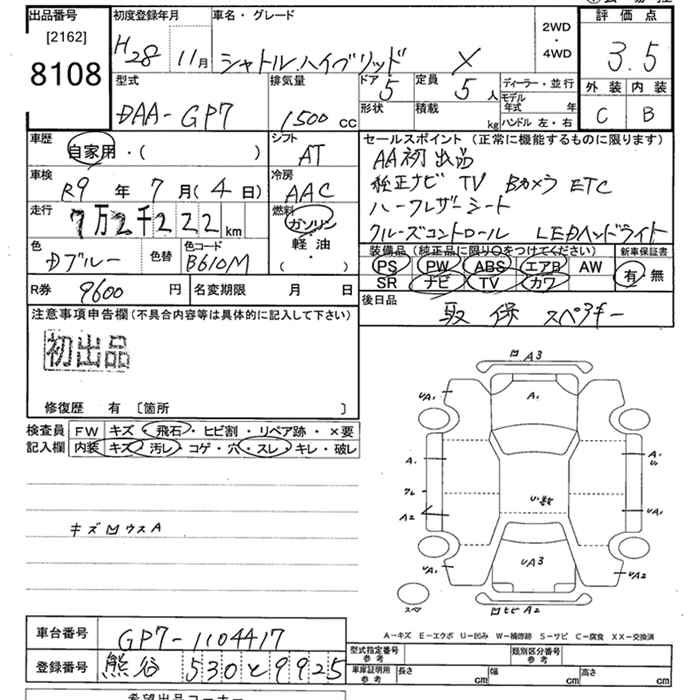 出品番号
[2162]
8108
初度登録年月
H28 11月
車名・グレード
シャトルハイブリッド X
2WD
・
4WD
評価点
3.5
外装 内装
C B
型式
DAA-GP7
排気量
1500 cc
ドア 5
定員 5 人
形状
積載 kg
ディーラー・並行
モデル年式 年
ハンドル 左・右
車歴
自家用・( )
シフト
AT
車検
R9 年 7 月(4 日)
冷房
AAC
走行
7万2千222 km
燃料
ガソリン
・
軽油
・
( )
色
Dブルー
色替
色コード
B610M
R券 9600 円
名変期限 月 日
セールスポイント (正常に機能するものに限ります)
AA初出品
純正ナビ TV Bカメラ ETC
ハーフレザーシート
クルーズコントロール LEDヘッドライト
装備品 (純正品に限り○をつけてください)
新車保証書
PS PW ABS エアB AW
SR ナビ TV カワ
有 無
後日品
取 保 スペアキー
注意事項申告欄(不具合内容等は具体的に記入して下さい)
初出品
修復歴 有 〔箇所 〕
検査員記入欄
FW キズ・飛石・ヒビ割・リペア跡・×要
内装 キズ・汚レ・コゲ・穴・スレ・キレ・破レ
キズ凹ウスA
凹A3
UA1
A1
A1
A2
U・数
UA1
UA3
UA1
UA2
凹ヒビA2
スペア
A-キズ E-エクボ U-凹み W-補修跡 S-サビ C-腐食 XX-交換済
車台番号
GP7-1104417
登録番号
熊谷 530 と 9925
型式指定番号
参考
類別区分番号
参考
車庫証明用
参考
長さ cm
幅 cm
高さ cm
希望出品コーナー